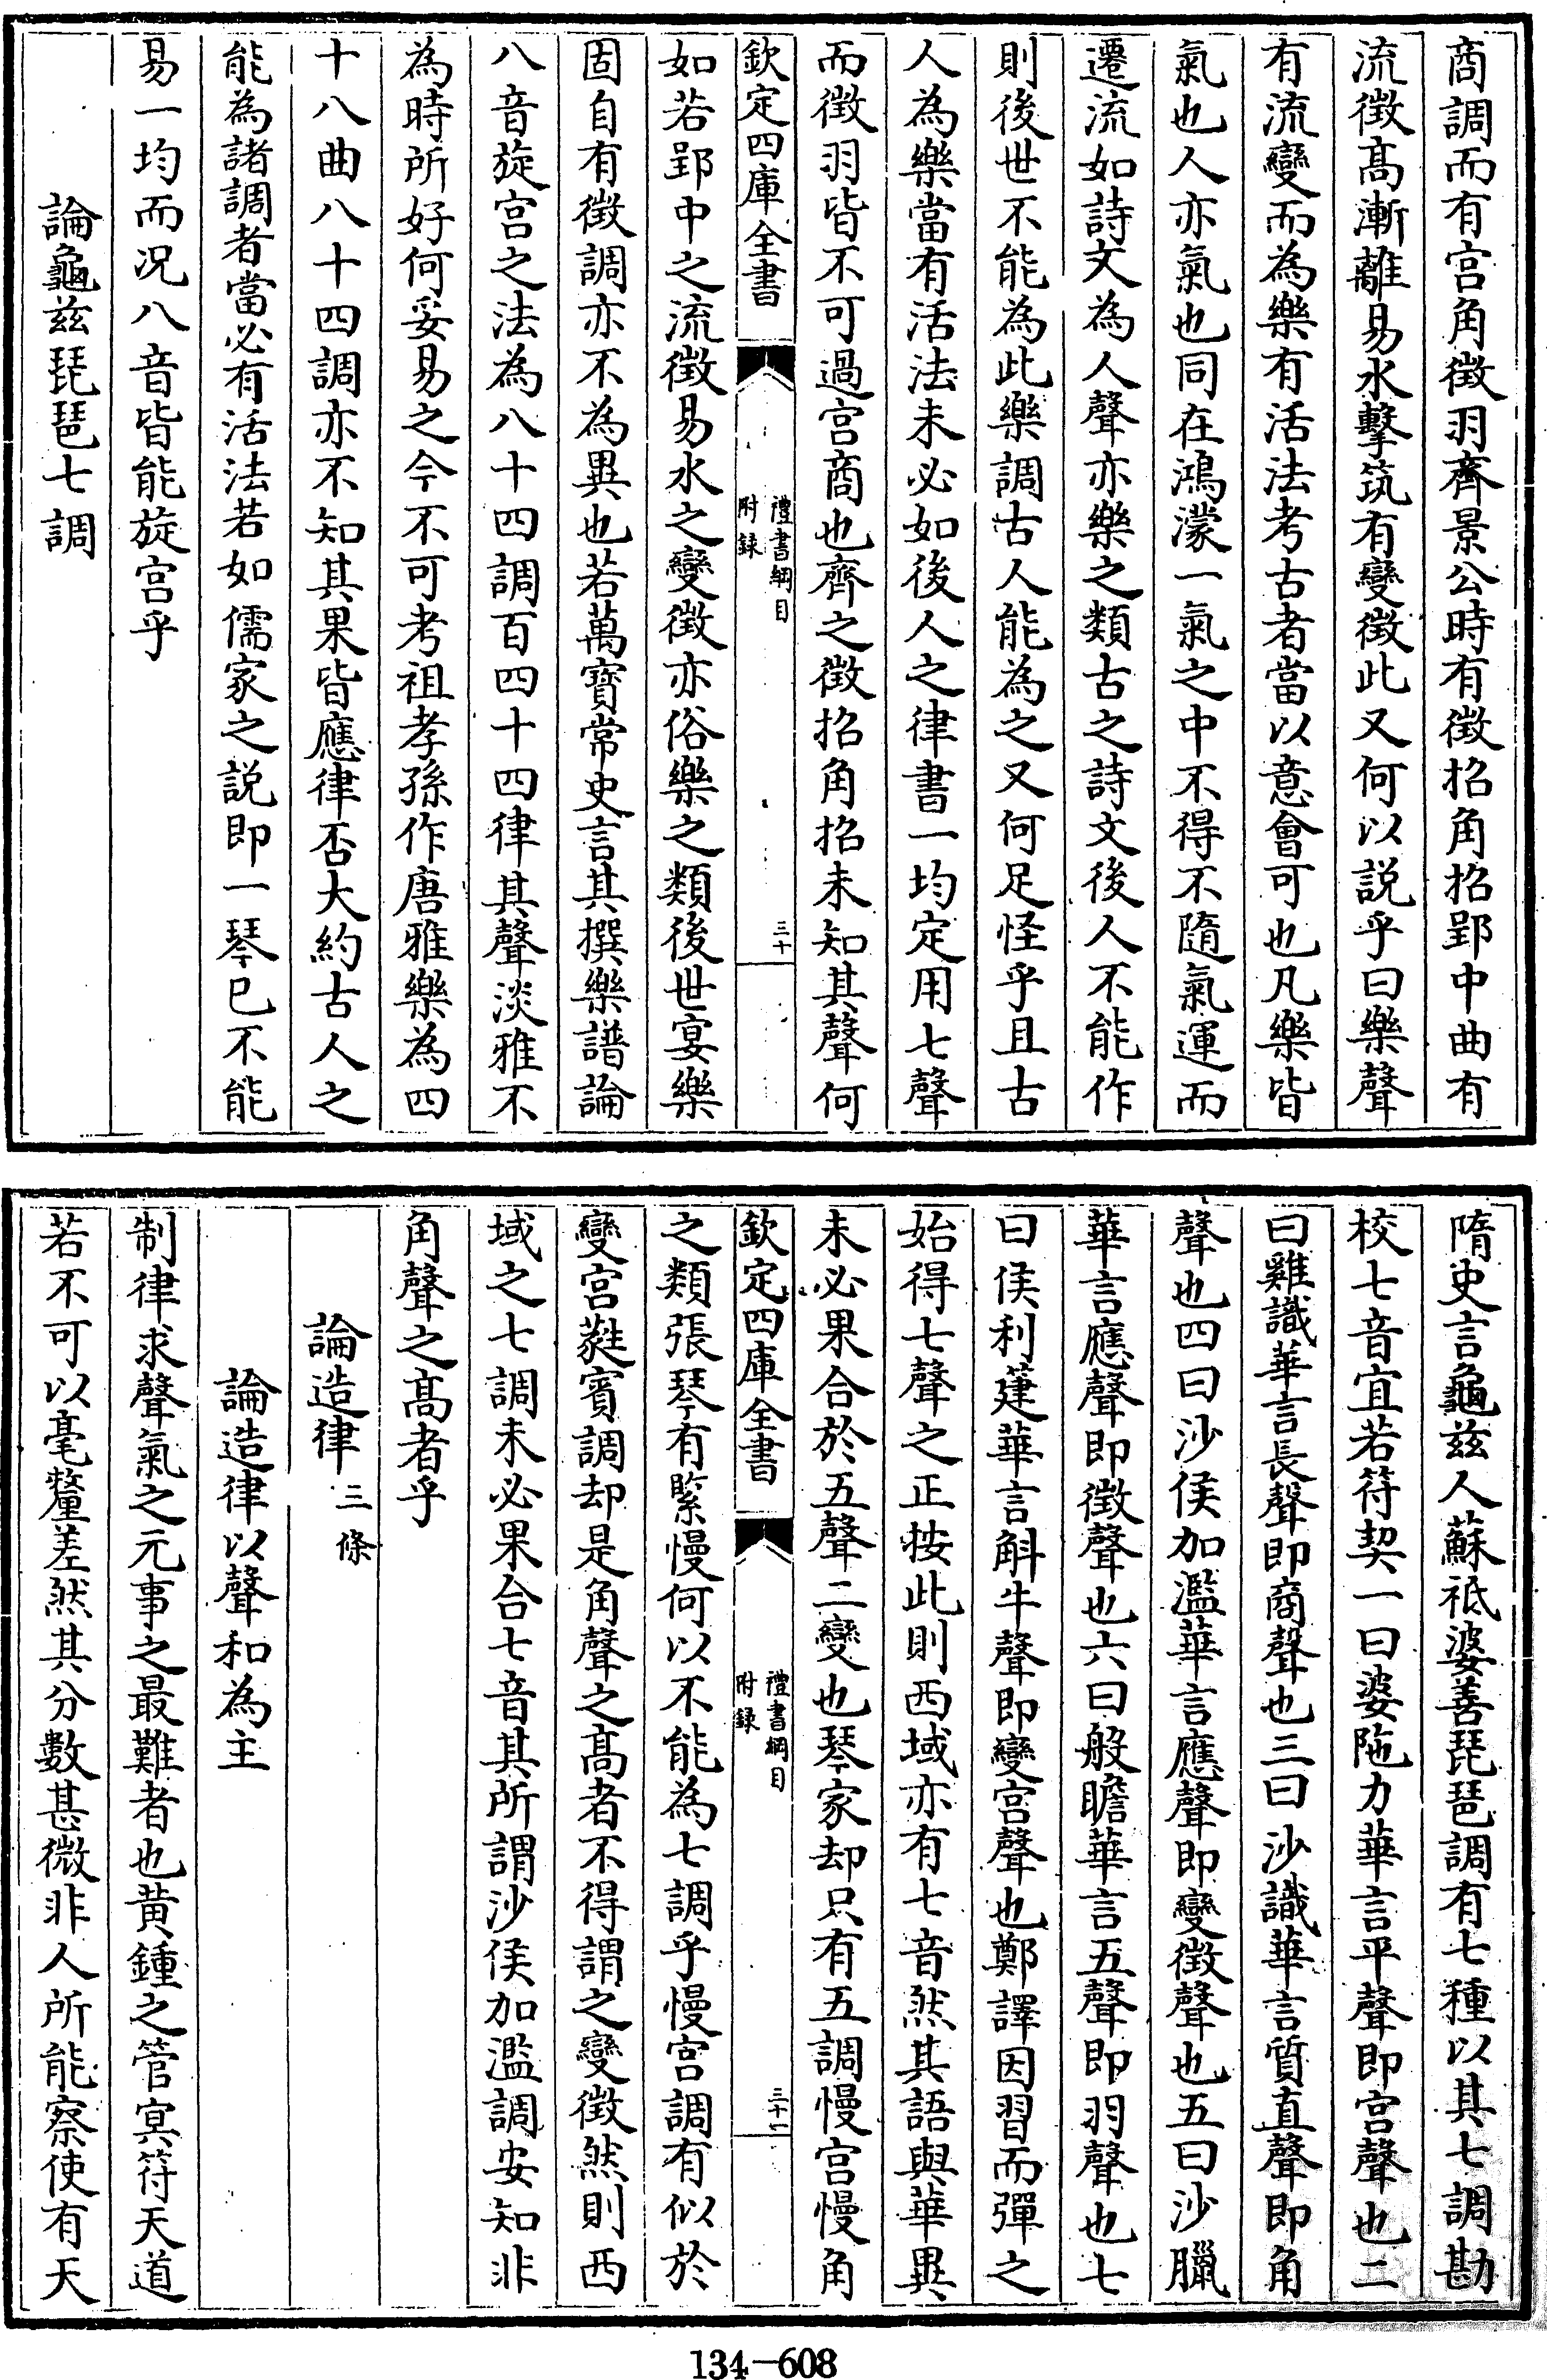 商調而有宫角徴羽齊景公時有徴招角招郢中曲有
流徴髙漸離易水擊筑有變徴此又何以説乎曰樂聲
有流變而為樂有活法考古者當以意會可也凡樂皆
氣也人亦氣也同在鴻濛一氣之中不得不隨氣運而
遷流如詩文為人聲亦樂之類古之詩文後人不能作
則後世不能為此樂調古人能為之又何足怪乎且古
人為樂當有活法未必如後人之律書一均定用七聲
而徴羽皆不可過宫商也齊之徴招角招未知其聲何
欽定四庫全書
禮書綱目
附録
三十
如若郢中之流徴易水之變徴亦俗樂之類後世宴樂
固自有徴調亦不為異也若萬寳常史言其撰樂譜論
八音旋宫之法為八十四調百四十四律其聲淡雅不
為時所好何妥易之今不可考祖孝孫作唐雅樂為四
十八曲八十四調亦不知其果皆應律否大約古人之
能為諸調者當必有活法若如儒家之説即一琴已不能
易一均而况八音皆能旋宫乎
論龜兹琵琶七調
隋史言龜兹人蘇祗婆善琵琶調有七種以其七調勘
校七音宜若符契一曰婆陁力華言平聲即宫聲也二
曰雞識華言長聲即商聲也三曰沙識華言質直聲即角
聲也四曰沙侯加濫華言應聲即變徴聲也五曰沙臘
華言應聲即徴聲也六曰般瞻華言五聲即羽聲也七
曰俟利䈎華言斛牛聲即變宫聲也鄭譯因習而彈之
始得七聲之正按此則西域亦有七音然其語與華異
未必果合於五聲二變也琴家却只有五調慢宫慢角
欽定四庫全書
禮書綱目
附録
三十一
之類張琴有緊慢何以不能為七調乎慢宫調有似於
變宫蕤賓調却是角聲之髙者不得謂之變徴然則西
域之七調未必果合七音其所謂沙侯加濫調安知非
角聲之髙者乎
論造律 三條
論造律以聲和為主
制律求聲氣之元事之最難者也黄鍾之管冥符天道
若不可以毫釐差然其分數甚微非人所能察使有天
134-608